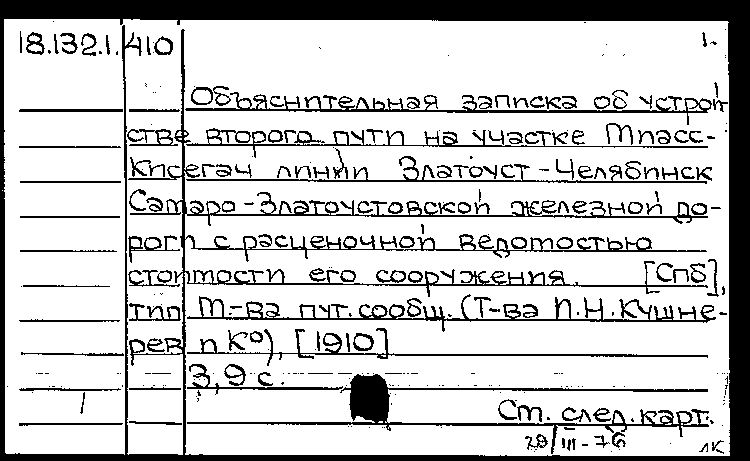 18.132.1.410 1.
Объяснительная записка об устрой
стве второго пути на участке Миасс-
Кисегач линии Златоуст-Челябинск
Самаро-Златоустовской железной до-
роги с расценочной ведомостью
стоимости его сооружения. [Спб],
тип М-ва пут. сообщ. (Т-ва И.Н.Кушне-
рев и К°), [1910]
3,9 с.
См. след. карт.
29/III-76
лк